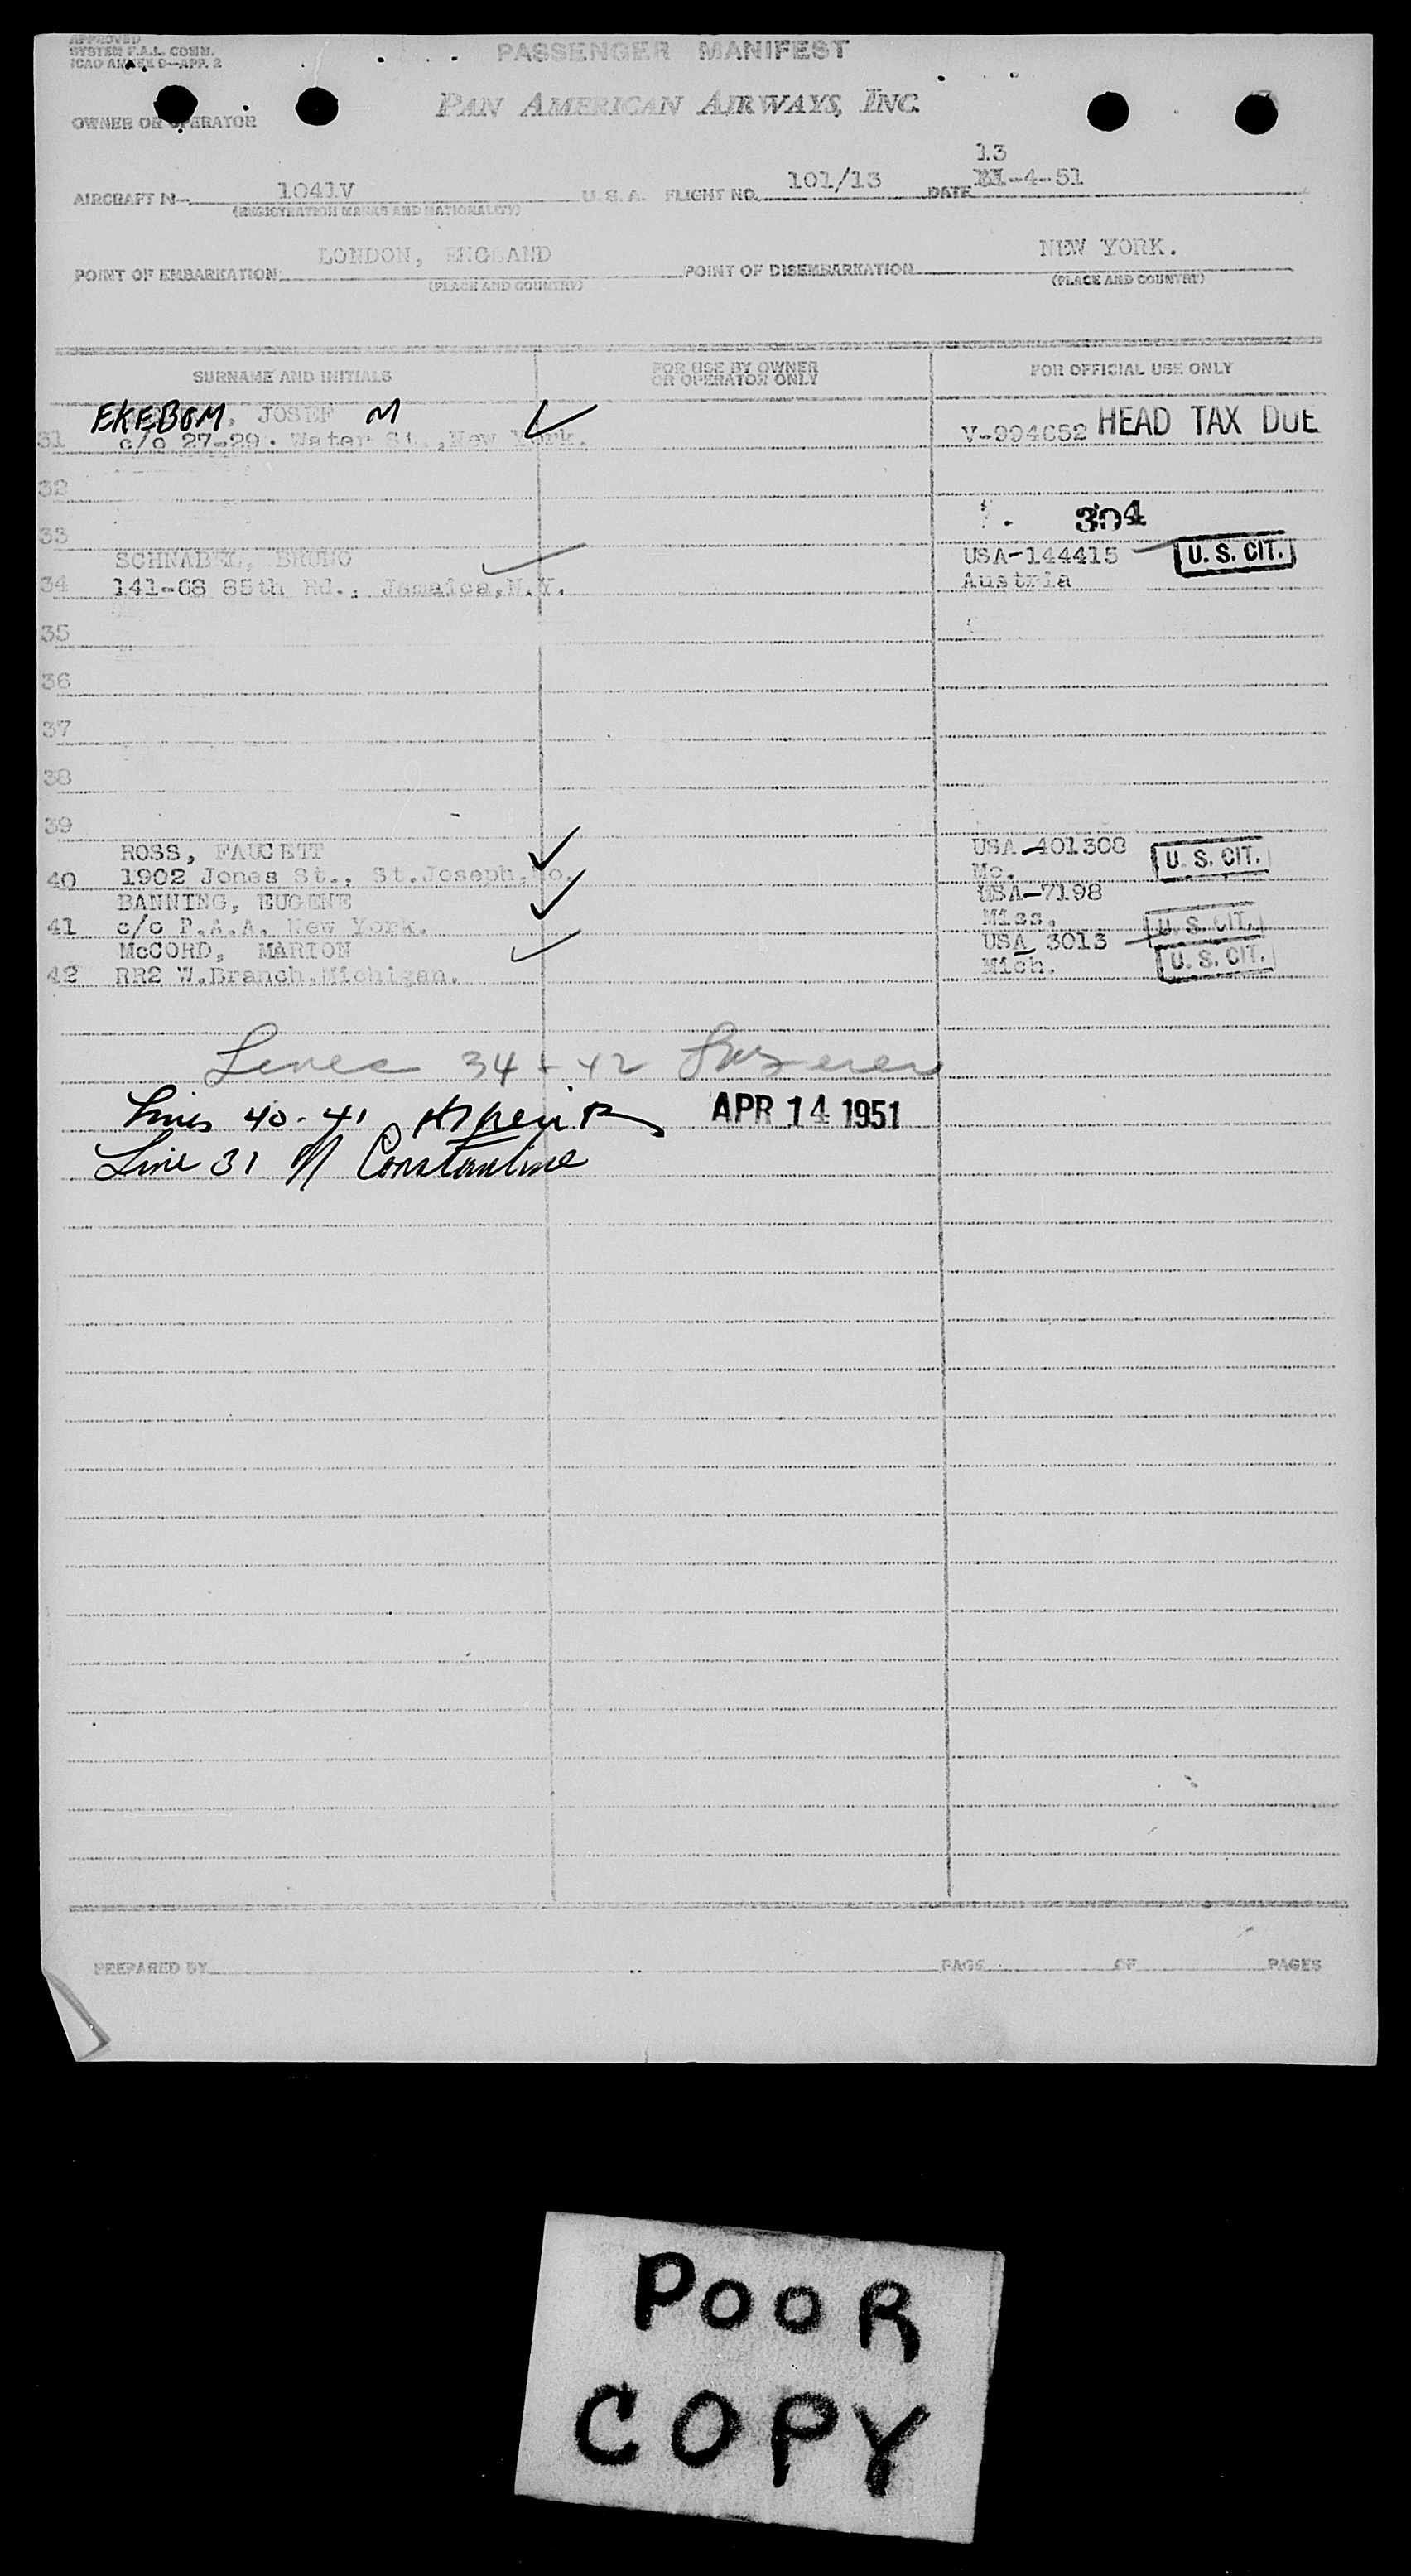 APPROVED
SYSTEM F.A.L. COMM.
ICAO ANNEX 9—APP. 2
PASSENGER MANIFEST
PAN AMERICAN AIRWAYS, INC.
OWNER OR OPERATOR
13
AIRCRAFT N- 1041V U. S. A. FLIGHT NO. 101/13 DATE -4-51
(REGISTRATION MARKS AND NATIONALITY)
POINT OF EMBARKATION: LONDON, ENGLAND POINT OF DISEMBARKATION NEW YORK.
(PLACE AND COUNTRY) (PLACE AND COUNTRY)
SURNAME AND INITIALS FOR USE BY OWNER OR OPERATOR ONLY FOR OFFICIAL USE ONLY
EKEBOM, JOSEF M
31 c/o 27-29. Water St.,New York. V-994652 HEAD TAX DUE
32
304
33
SCHNABEL, BRUNO USA-144415 U. S. CIT.
34 141-68 85th Rd., Jamaica,N.Y. Austria
35
36
37
38
39
ROSS, FAUCETT USA-401308 U. S. CIT.
40 1902 Jones St., St.Joseph,Mo. Mo.
BANNING, EUGENE USA-7198
41 c/o P.A.A. New York. Miss. U. S. CIT.
McCORD, MARION USA 3013
42 RR2 W.Branch.Michigan. Mich. U. S. CIT.
Lines 34 + 42
Lines 40-41 APR 14 1951
Line 31 M Constantine
PREPARED BY PAGE OF PAGES
POOR
COPY